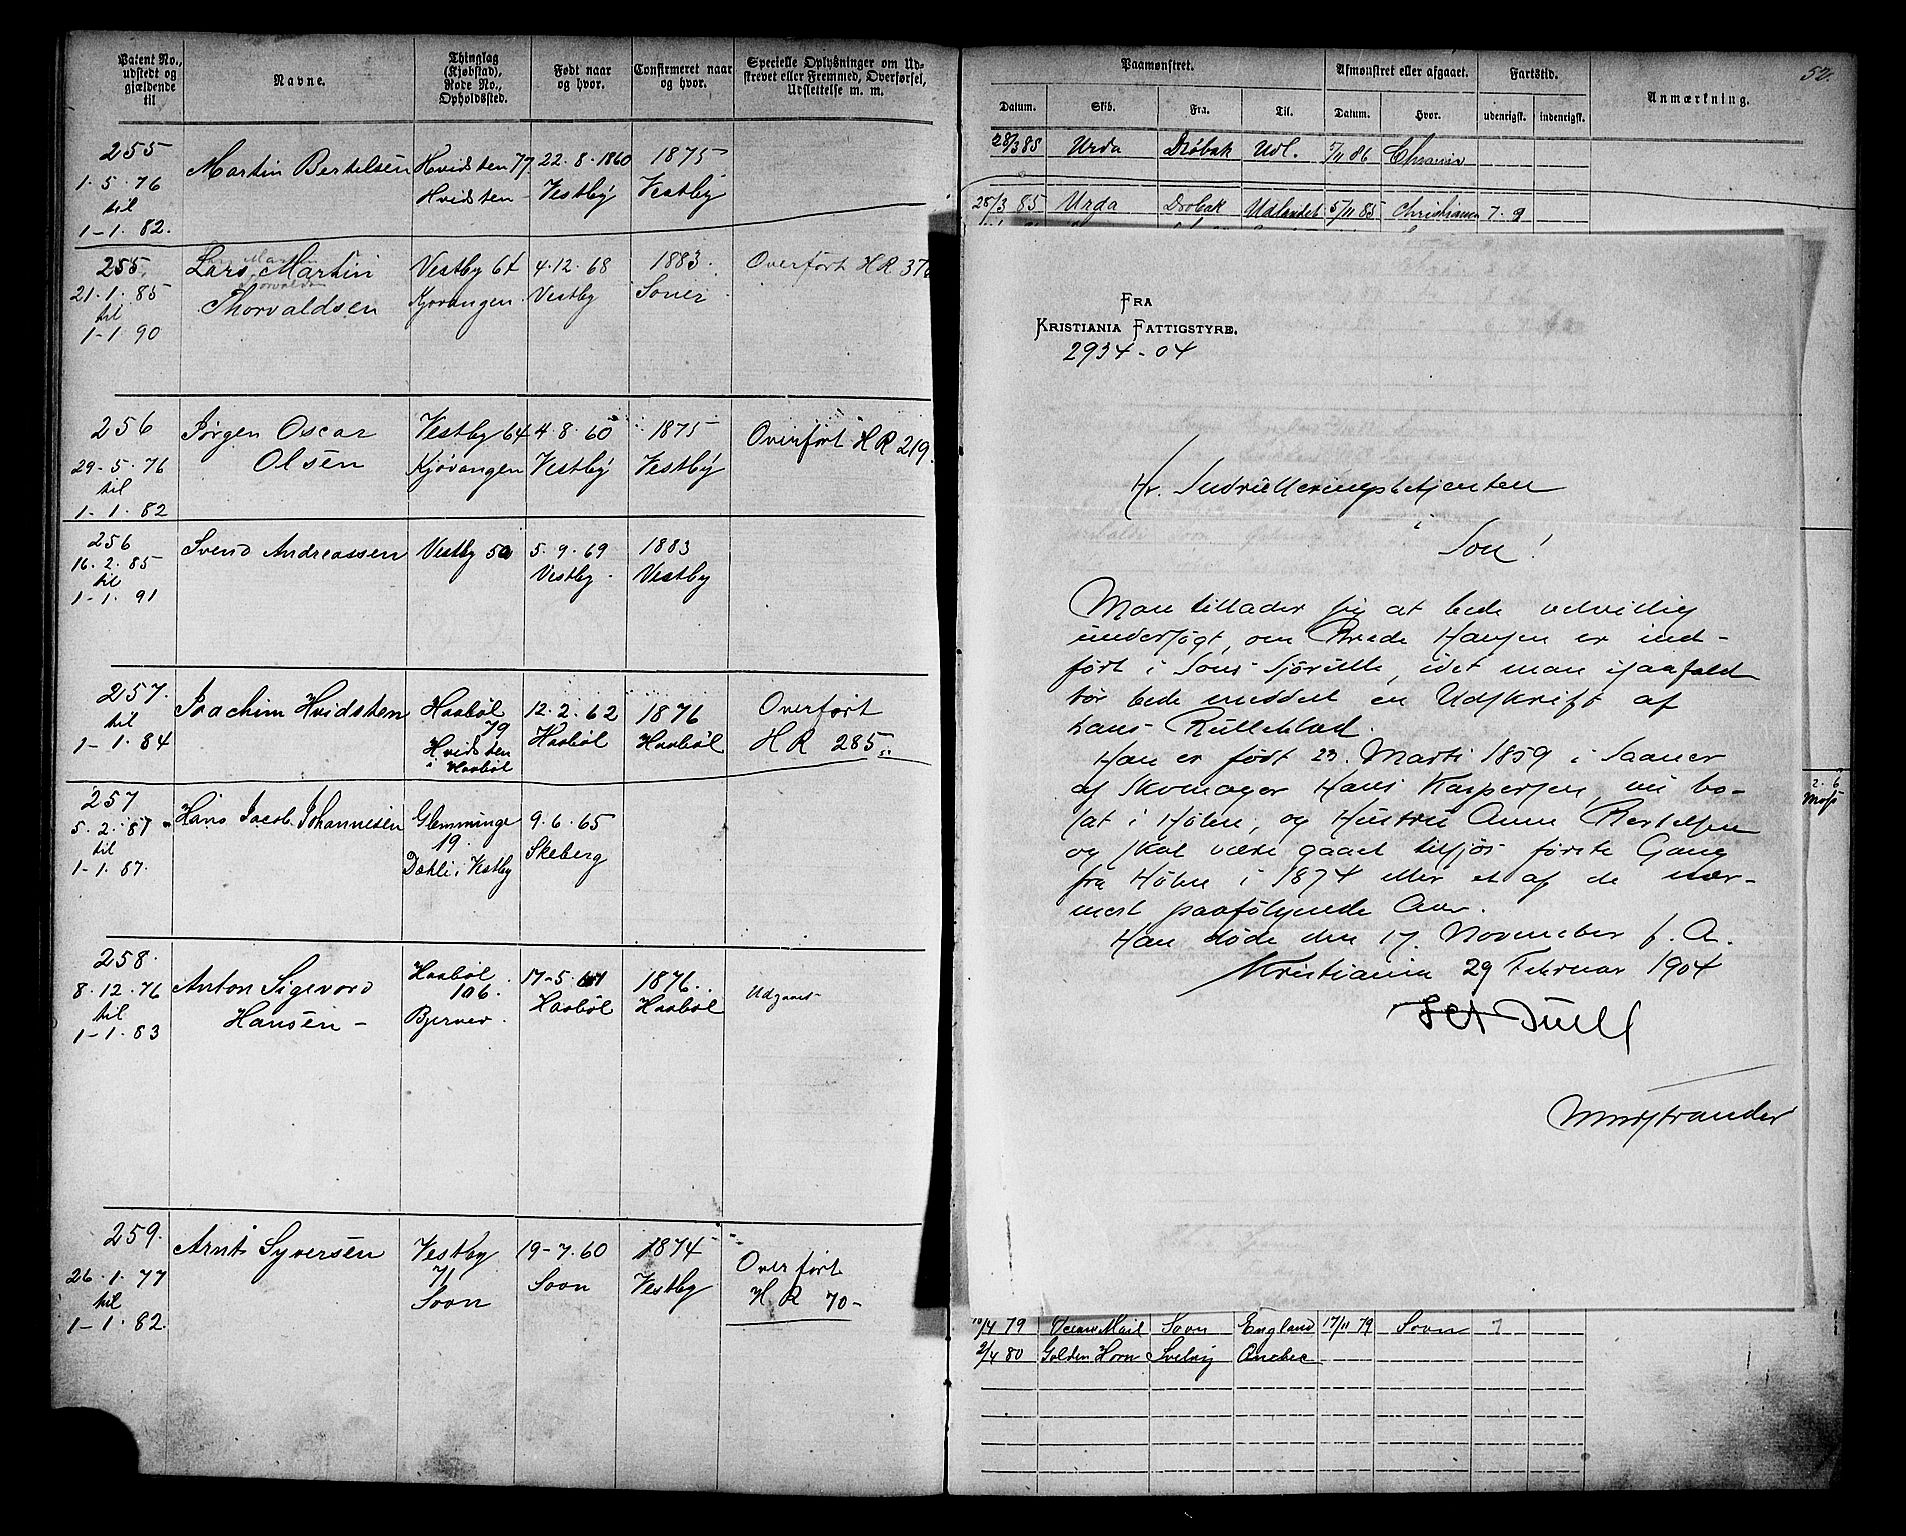 Patent No., udstedt og gjældende til
Navne.
Thinglag (Kjøbstad), Rode No., Opholdssted.
Født naar og hvor.
Confirmeret naar og hvor.
Specielle Oplysninger om Udskrevet eller Fremmed, Overførsel, Udslettelse m. m.
255
1 · 5 · 76
til
1-1. 82.
Martin Bertelsen
Hvidsten 77
Hvidsten
22. 8. 1860
Vestby
1875
Vestby
255
21. 1. 85
til
1-1. 90
Lars Martin
Thorvaldsen
Vestby 64
Kjøvangen
4. 12. 68
Vestby
1883.
Soner
Overført HR 376
256
29-5. 76
til
1-1. 82
Jørgen Oscar
Olsen
Vestby 64
Kjøvangen
4. 8. 60
Vestby
1875
Vestby
Overført HR 219.
256
16. 2. 85
til
1-1. 91
Svend Andreassen
Vestby 50
5. 9. 69
Vestby.
1883
Vestby
257.
til
1-1. 84
Joachim Hvidsten
Haabøl
79
Hvidsten
i Haabøl
12. 2. 62
Haabøl
1876
Haabøl
Overført
HR 285
257
5. 2. 81
til
1-1. 87.
Hans Jacob Johannesen
Glemminge
19.
Dahli i Vestby
9. 6. 65
Skeberg
258.
8. 12. 76
til
1-1. 83
Anton Sigevard
Hansen -
Haabøl
106.
Bjerner.
17-5. 61
Haabøl
1876.
Haabøl
Udgaaet-
259.
26. 1. 77
til
1-1. 82.
Arnt Syversen
Vestby
71
Soon
19-7. 60
Soon
1874
Vestby
Overført
HR 70-
52.
Paamønstret.
Afmønstret eller afgaaet.
Fartstid.
Anmærkning.
Datum. Skib. Fra. Til. Datum. Hvor. udenrigsk. indenrigsk.
28/3 85 Urda Drøbak Udl. 7/11 86
28/3 85 Urda Drøbak Udlandet 5/11 85 Christiania 7. 9
FRA
KRISTIANIA FATTIGSTYRE.
2934-04
Hr. Indrulleringsbetjenten
i
Son!
Man tillader sig at bede velvillig
undersøgt, om Brede Hansen er ind-
ført i Sons Sjørulle, idet man isaafald
bør bede meddelt en Udskrift af
hans Rulleblad.
Han er født 23. Marts 1859 i Saaner
af Skomager Hans Kaspersen, nu bo-
sat i Hølen, og Hustru Anne Bertelsen
og skal være gaaet tilsjøs første Gang
fra Hølen i 1874 eller et af de nær-
mest paafølgende Aar.
Han døde den 17. November f. A.
Kristiania 29 Februar 1904
2. 6
Moss
10/4 79 Mail Soon England 17/11 79 Soon 7
2/4 80 Golden Horn Svelvig Quebec